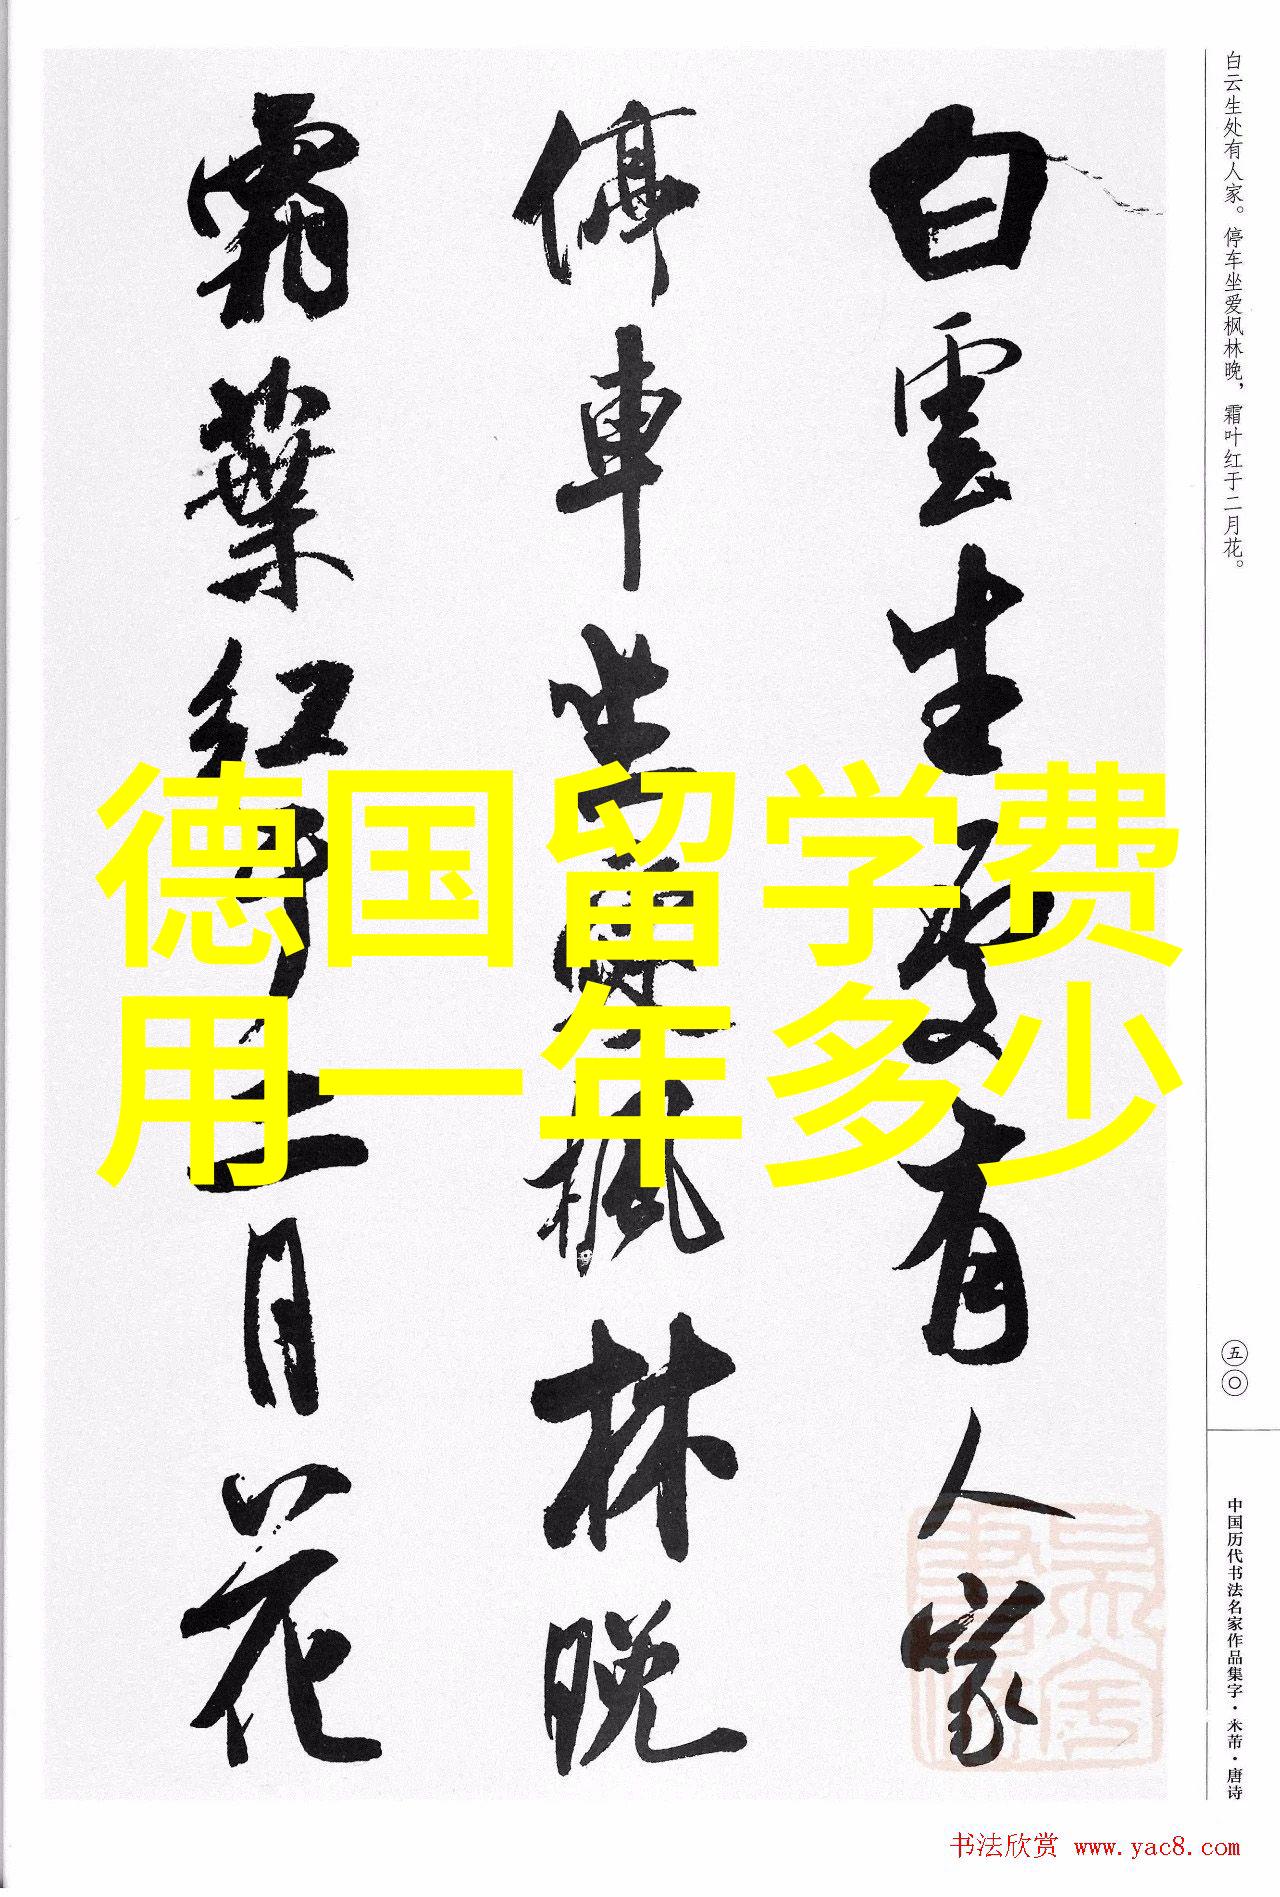 德国留学费
用一年多少
白雲生處有人家
停車坐愛楓林晚
霜葉紅於二月花
白云生处有人家。停车坐爱枫林晚，霜叶红于二月花。
五〇
中国历代书法名家作品集字·米芾·唐诗
书法欣赏 www.yac8.com